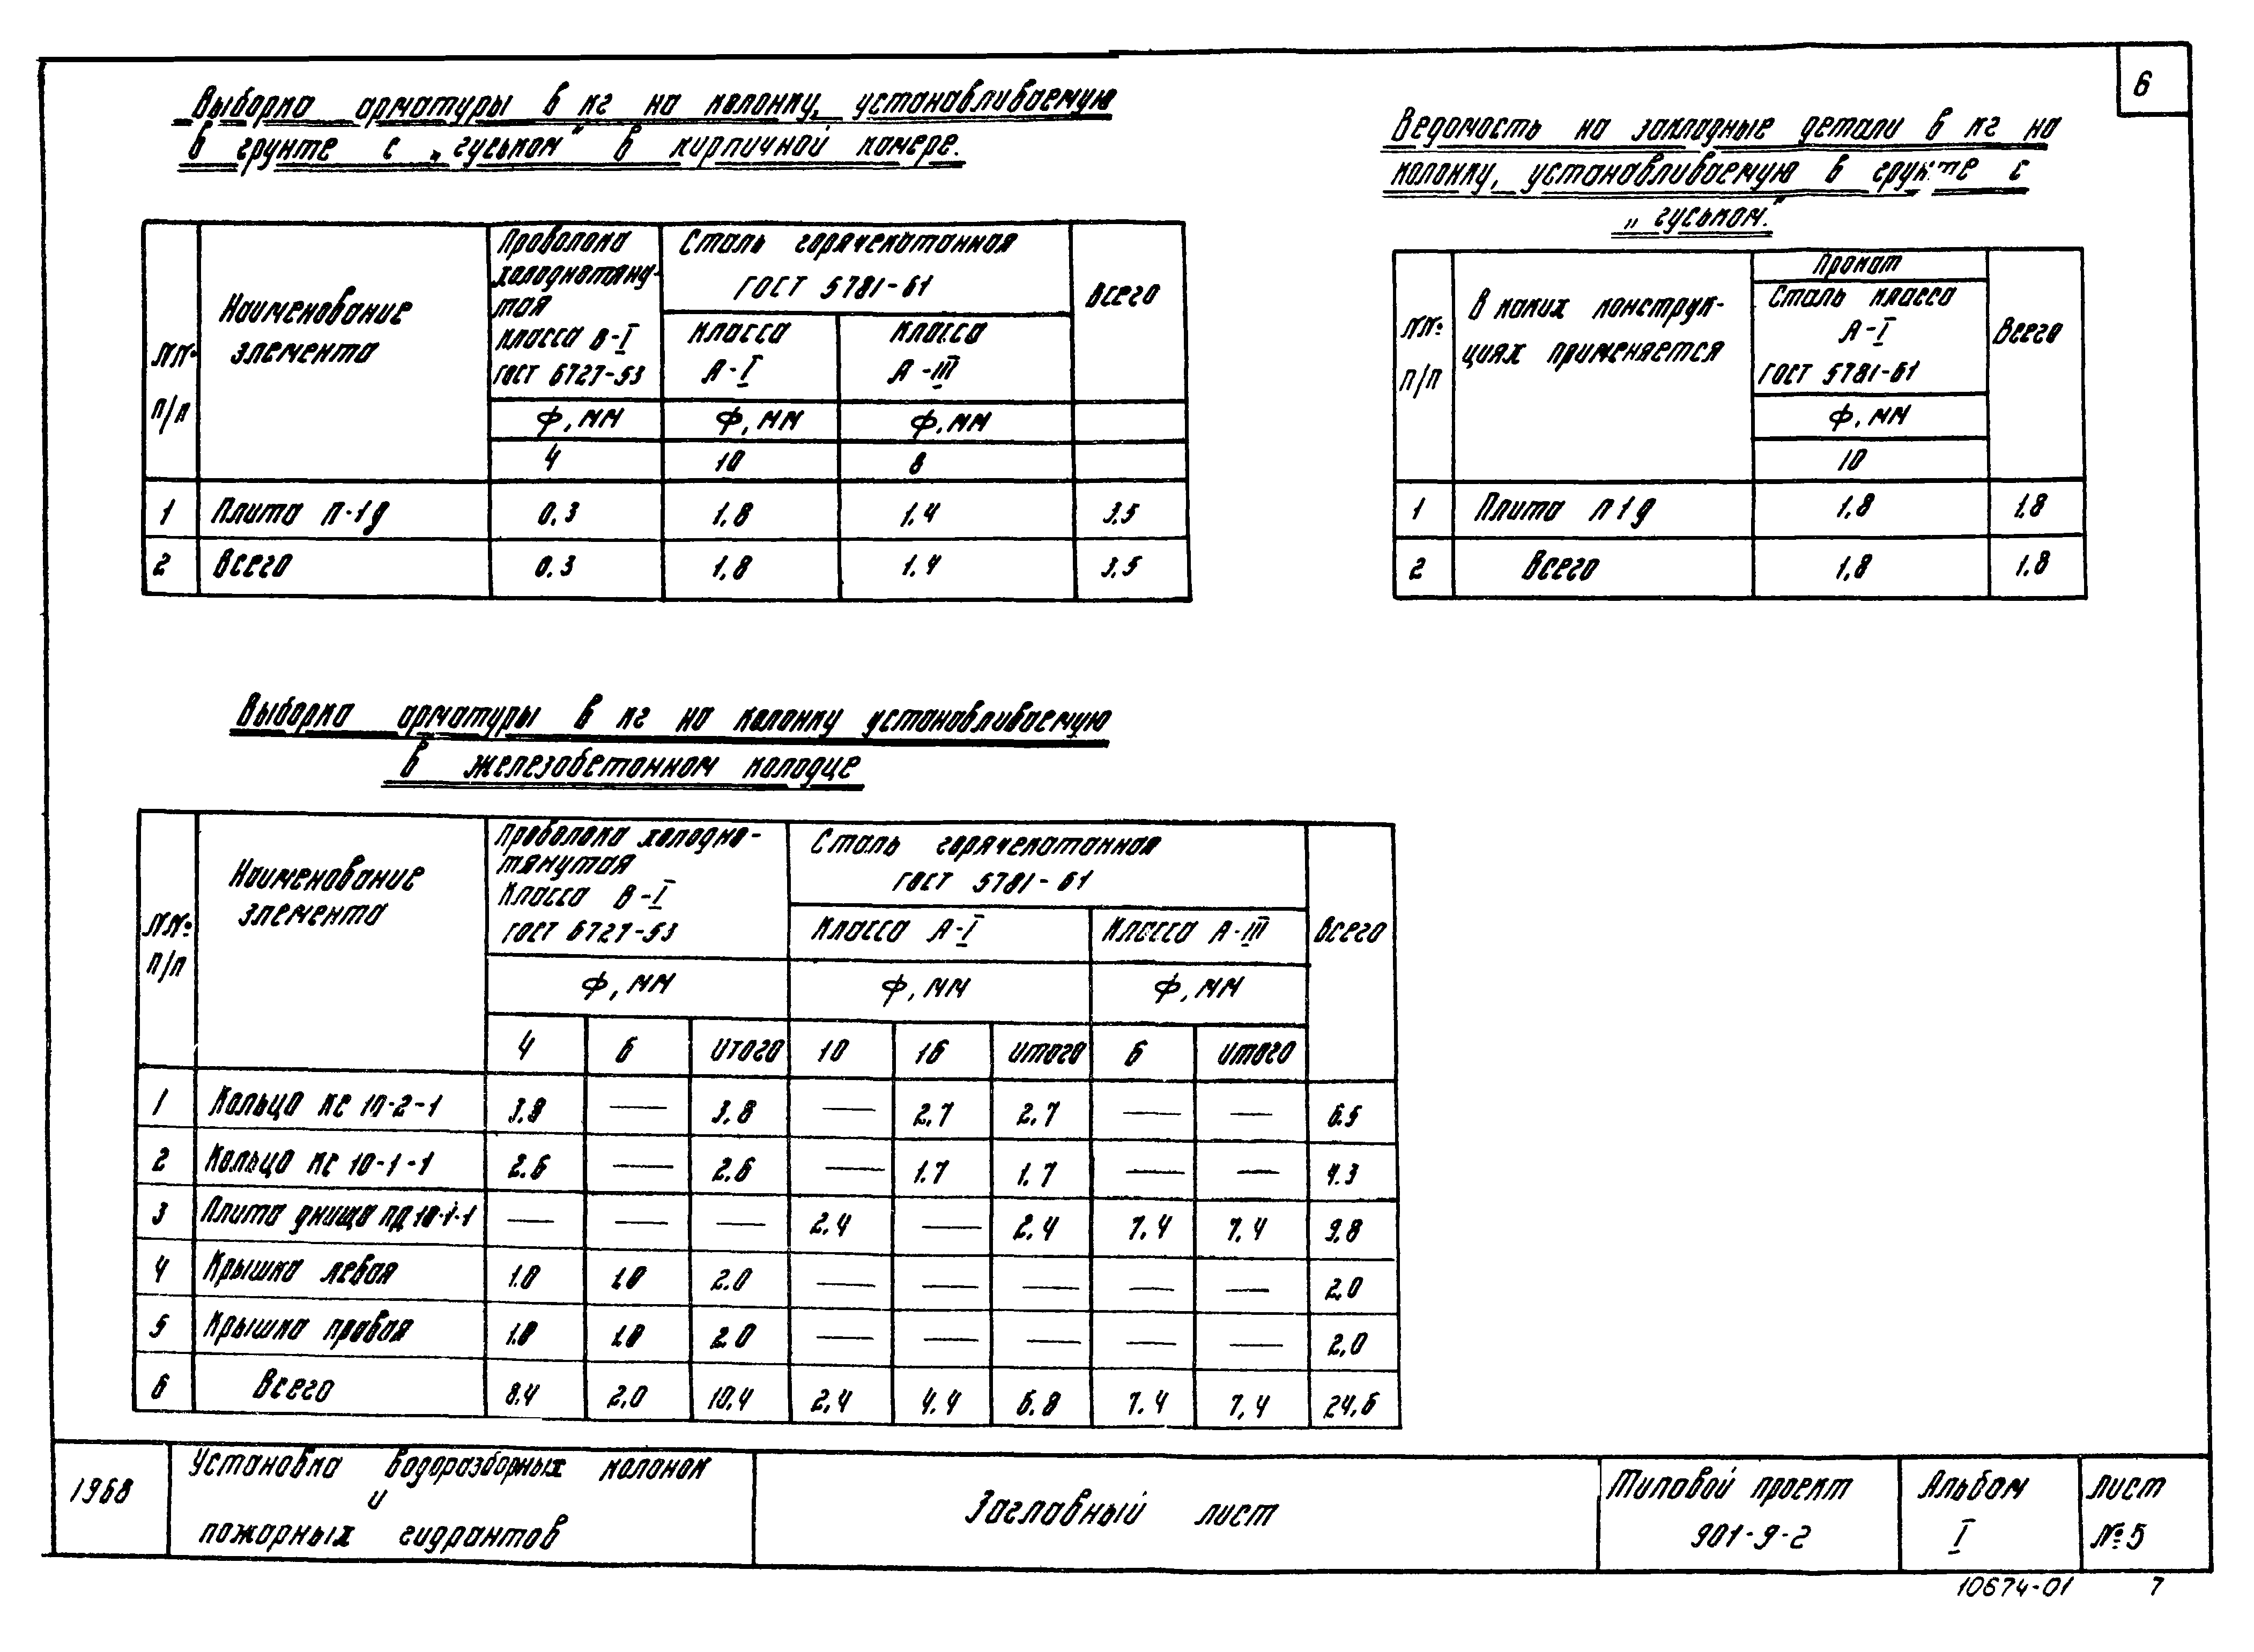 6
Выборка арматуры в кг на колонку, устанавливаемую
в грунте с „гуськом" в кирпичной камере.
NN° п/п
Наименование элемента
Проволока холоднотяну-
тая
класса В-I
ГОСТ 6727-53
Сталь горячекатанная
ГОСТ 5781-61
Всего
Класса А-I
Класса А-III
Ф, мм Ф, мм Ф, мм
4 10 8
1 Плита П-1д 0.3 1.8 1.4 3.5
2 Всего 0.3 1.8 1.4 3.5
Ведомость на закладные детали в кг на
колонку, устанавливаемую в грунте с
„гуськом."
NN° п/п
В каких конструк-
циях применяется
Прокат
Сталь класса
А-I
ГОСТ 5781-61
Всего
Ф, мм
10
1 Плита П1д 1,8 1.8
2 Всего 1,8 1.8
Выборка арматуры в кг на колонку устанавливаемую
в железобетонном колодце
NN° п/п
Наименование элемента
Проволока холодно-
тянутая
Класса В-I
ГОСТ 6727-53
Сталь горячекатанная
ГОСТ 5781-61
Класса А-I Класса А-III
Всего
Ф, мм Ф, мм Ф, мм
4 6 итого 10 16 итого 6 итого
1 Кольцо кс 10-2-1 3.8 — 3.8 — 2.7 2.7 — — 6.5
2 Кольцо кс 10-1-1 2.6 — 2.6 — 1.7 1.7 — — 4.3
3 Плита днища пд 10-1-1 — — — 2.4 — 2.4 7.4 7.4 9.8
4 Крышка левая 1.0 1.0 2.0 — — — — — 2.0
5 Крышка правая 1.0 1.0 2.0 — — — — — 2,0
6 Всего 8.4 2.0 10.4 2,4 4.4 6.8 7.4 7,4 24,6
1968
Установка водоразборных колонок
и
пожарных гидрантов
Заглавный лист
Типовой проект
901-9-2
Альбом
I
лист
№5
10674-01 7